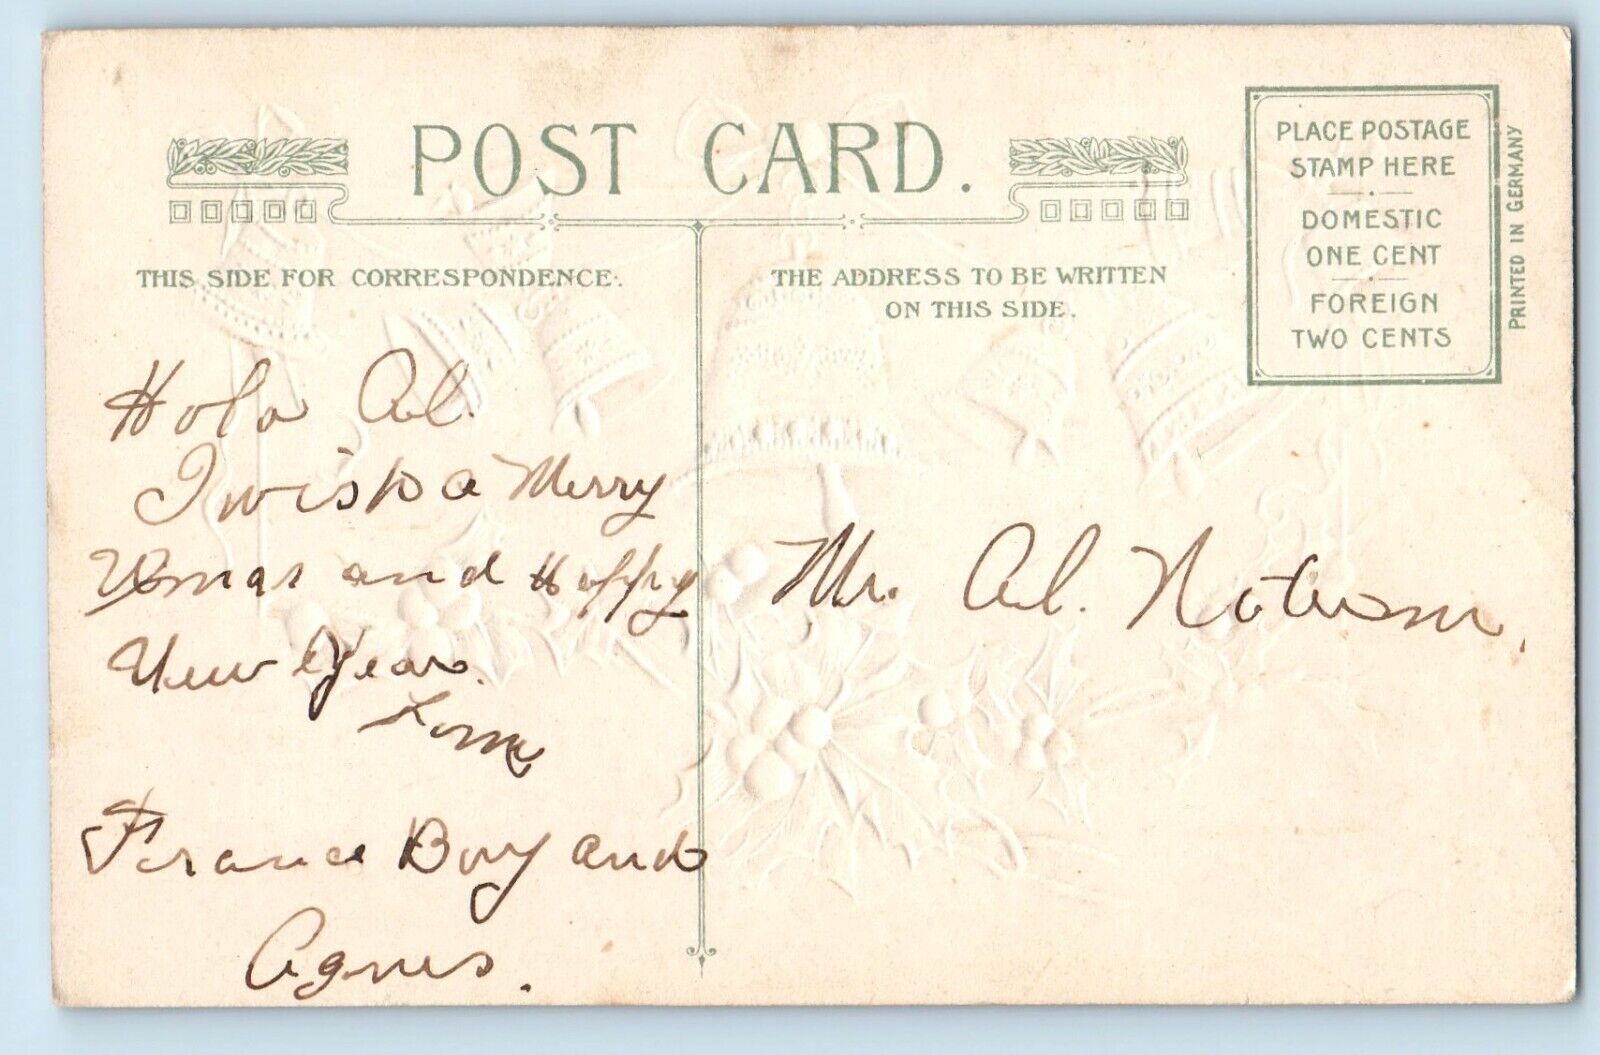 POST CARD.
THIS SIDE FOR CORRESPONDENCE.
THE ADDRESS TO BE WRITTEN
ON THIS SIDE.
PLACE POSTAGE
STAMP HERE
DOMESTIC
ONE CENT
FOREIGN
TWO CENTS
PRINTED IN GERMANY
Hola Al.
I wish a Merry
Xmas and Happy
New Year.
From
France Boy and
Agnes.
Mr. Al.